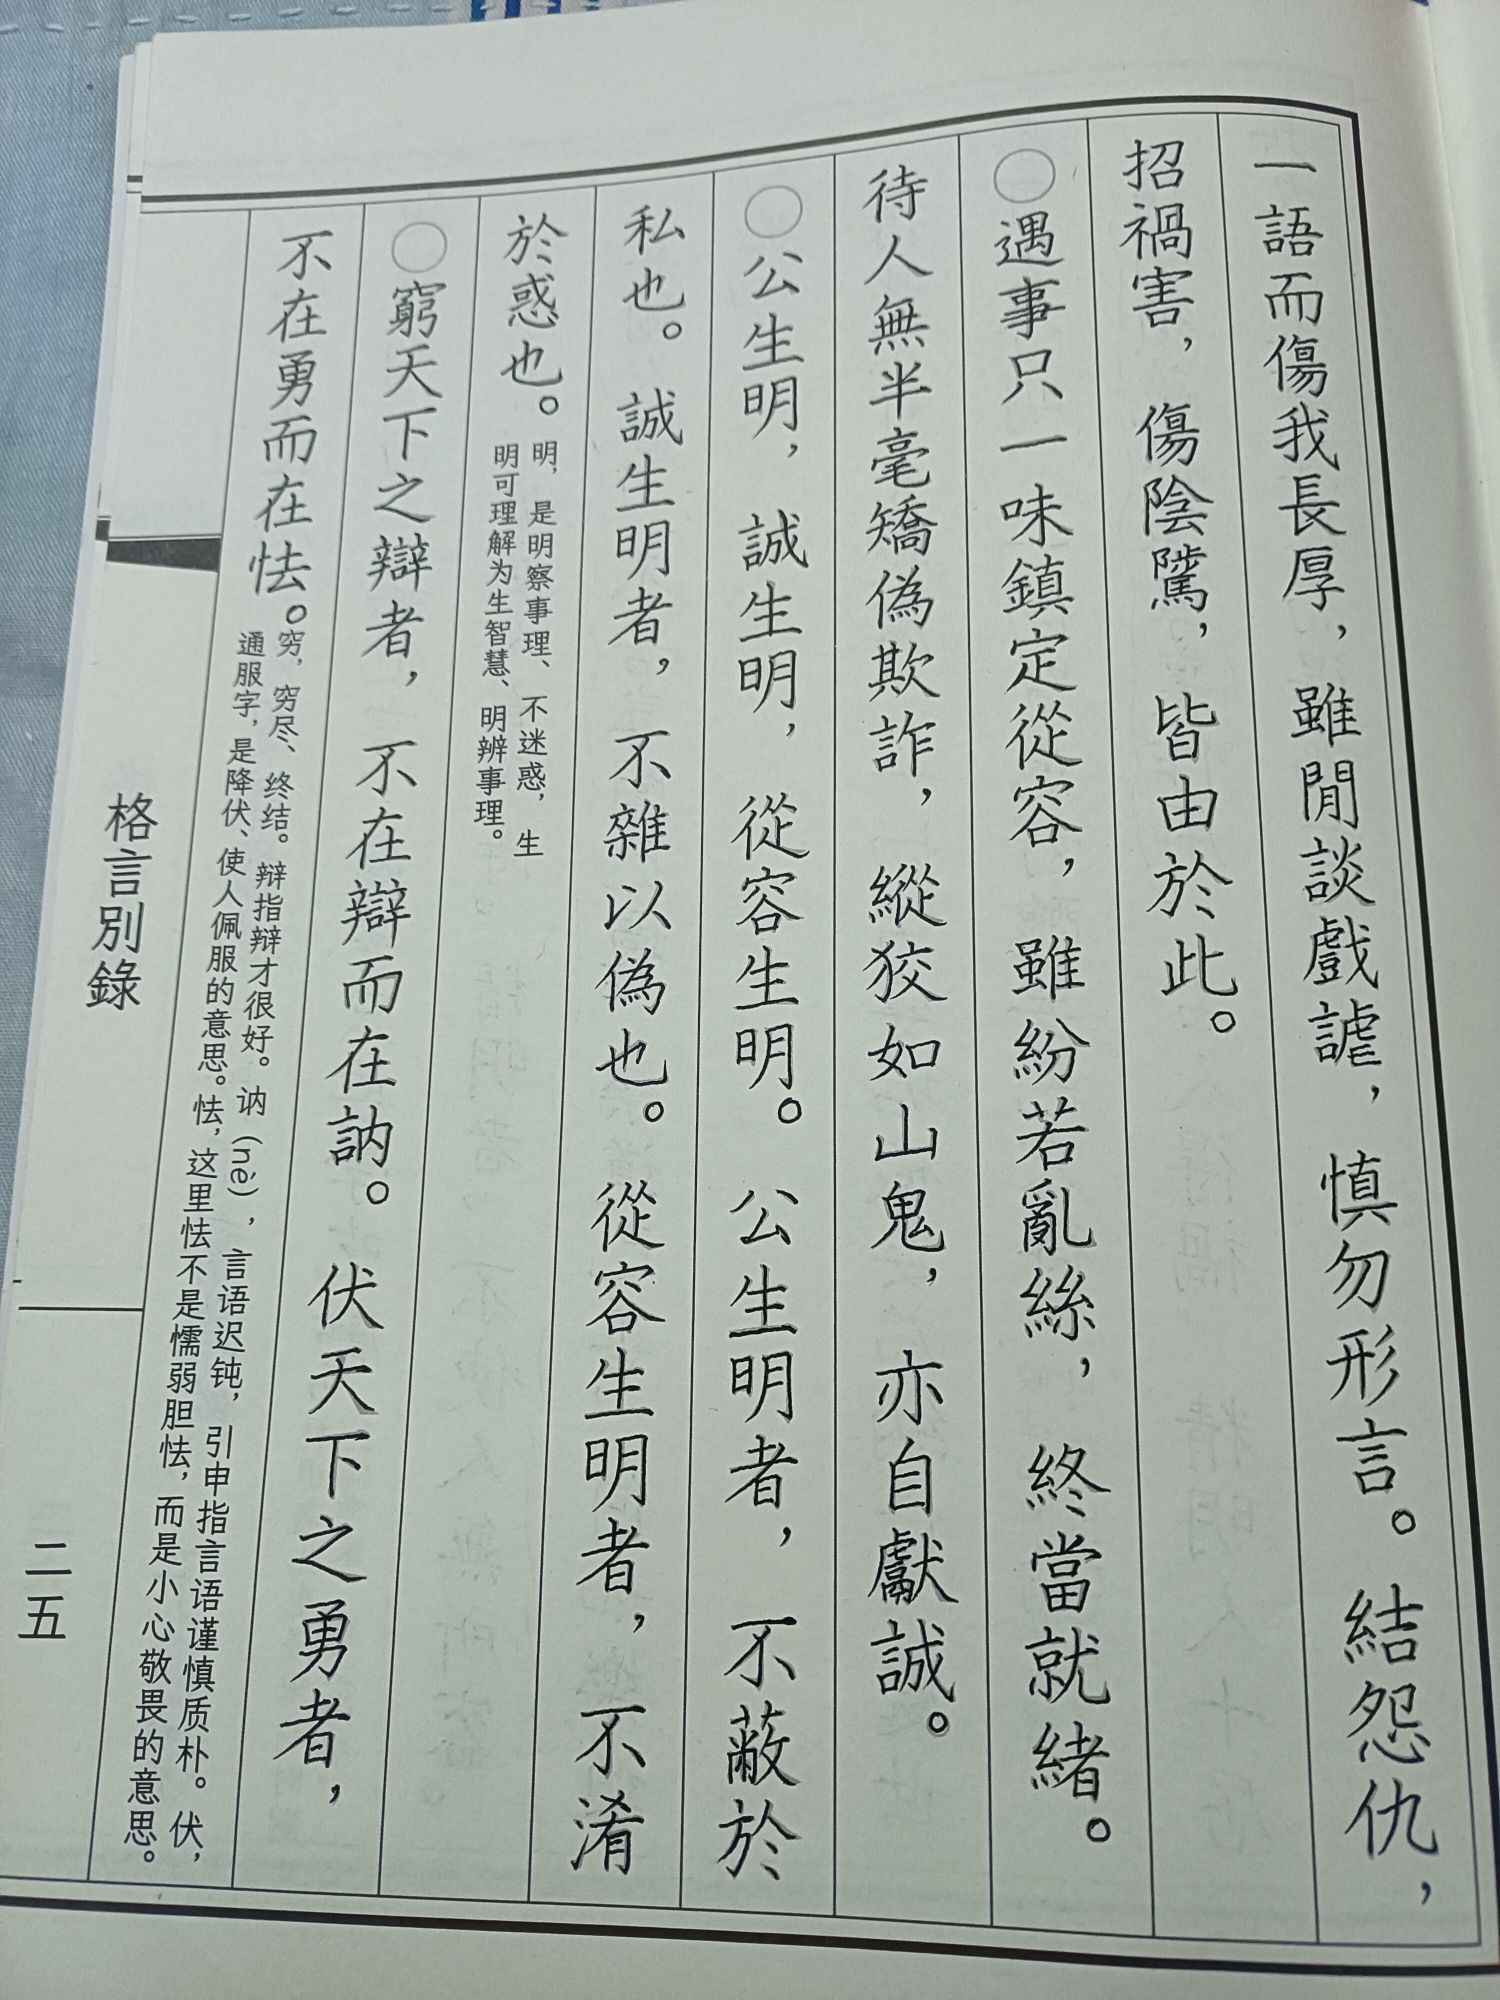 一語而傷我長厚，雖閒談戲謔，慎勿形言。結怨仇，
招禍害，傷陰騭，皆由於此。
○遇事只一味鎮定從容，雖紛若亂絲，終當就緒。
待人無半毫矯偽欺詐，縱狡如山鬼，亦自獻誠。
○公生明，誠生明，從容生明。公生明者，不蔽於
私也。誠生明者，不雜以偽也。從容生明者，不淆
於惑也。
明，是明察事理、不迷惑，生
明可理解为生智慧、明辨事理。
○窮天下之辯者，不在辯而在訥。伏天下之勇者，
不在勇而在怯。
穷，穷尽、终结。辩指辩才很好。讷（nè），言语迟钝，引申指言语谨慎质朴。伏，
通服字，是降伏、使人佩服的意思。怯，这里怯不是懦弱胆怯，而是小心敬畏的意思。
格言別錄
二五